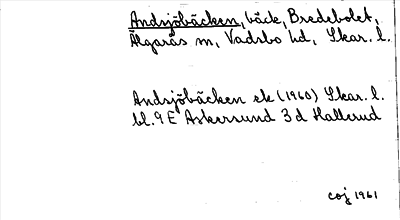 Andsjöbäcken, bäck, Bredebolet,
Älgarås sn, Vadsbo hd, Skar. l.
Andsjöbäcken ek (1960) Skar. l.
bl. 9E Askersund 3d Hallerud
coj 1961